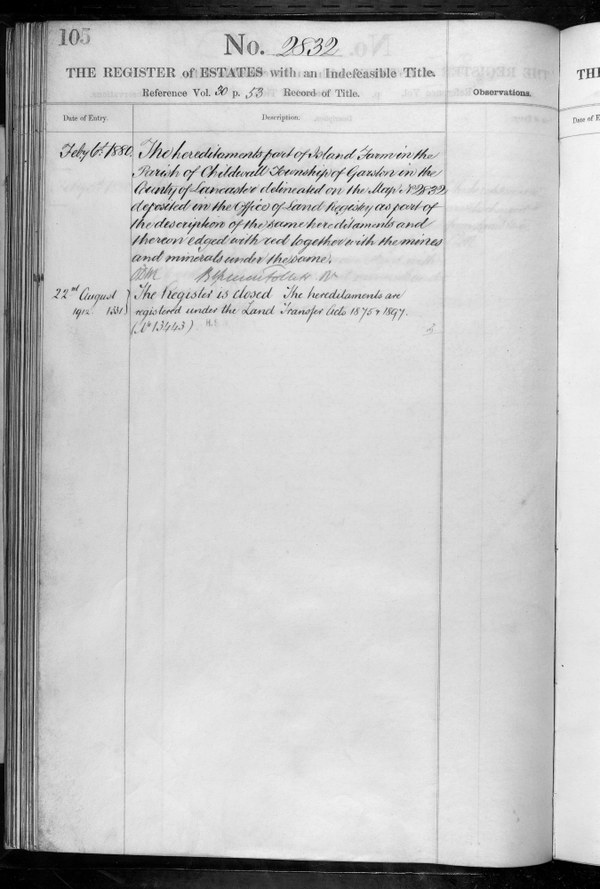 105
No. 2832
THE REGISTER of ESTATES with an Indefeasible Title.
Reference Vol. 30 p. 53 Record of Title.
Observations.
Date of Entry.
Description.
Feby 6th 1880.
The hereditaments part of Island Farm in the
Parish of Childwall Township of Garston in the
County of Lancaster delineated on the Map No 2832
deposited in the Office of Land Registry as part of
the description of the same hereditaments and
thereon edged with red together with the mines
and minerals under the same.
22nd August
1912 1331
The Register is closed The hereditaments are
registered under the Land Transfer Acts 1875 & 1897.
(No 13443)
TH
Date of E